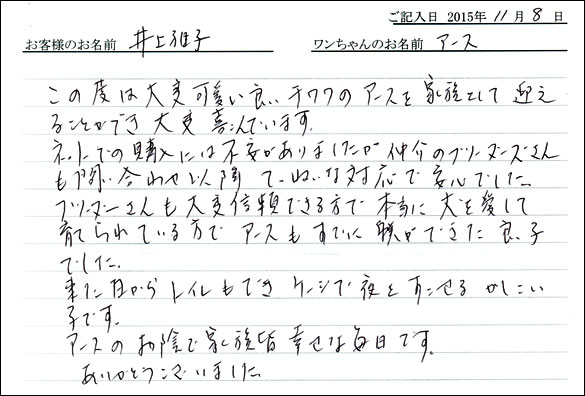 ご記入日 2015年 11月 8日
お客様のお名前 井上雅子 ワンちゃんのお名前 アース
この度は大変可愛い良い チワワの アースを 家族として 迎え
ることができ 大変 喜んでいます。
ネットでの購入には不安がありましたが 仲介のブリーダーズさん
も 問い合わせ以降 ていねいな対応で 安心でした。
ブリーダーさんも大変信頼できる方で 本当に 犬を愛して
育てられている方で アースも すでに 躾ができた 良い子
でした。
来た日から トイレもでき ケージで 夜を すごせる かしこい
子です。
アースの お陰で 家族皆 幸せな毎日です。
ありがとうございました。